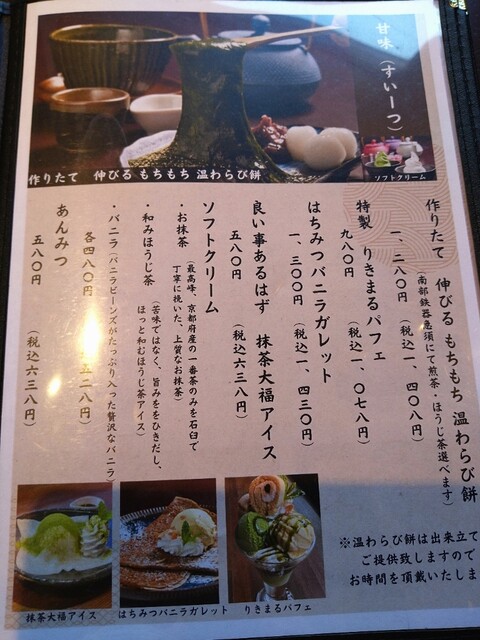 甘味(すいーつ)
ソフトクリーム
作りたて 伸びる もちもち 温わらび餅
作りたて 伸びる もちもち 温わらび餅
(南部鉄器急須にて煎茶・ほうじ茶選べます)
一、二八〇円(税込一、四〇八円)
特製 りきまるパフェ
九八〇円(税込一、〇七八円)
はちみつバニラガレット
一、三〇〇円(税込一、四三〇円)
良い事あるはず 抹茶大福アイス
五八〇円(税込六三八円)
ソフトクリーム
・お抹茶(最高峰、京都府産の一番茶のみを石臼で
丁寧に挽いた、上質なお抹茶)
・和みほうじ茶(苦味ではなく、旨みををひきだし、
ほっと和むほうじ茶アイス)
・バニラ(バニラビーンズがたっぷり入った贅沢なバニラ)
各四八〇円 五二八円)
あんみつ
五八〇円(税込六三八円)
※温わらび餅は出来立て
ご提供致しますので
お時間を頂戴いたしま
抹茶大福アイス
はちみつバニラガレット
りきまるパフェ